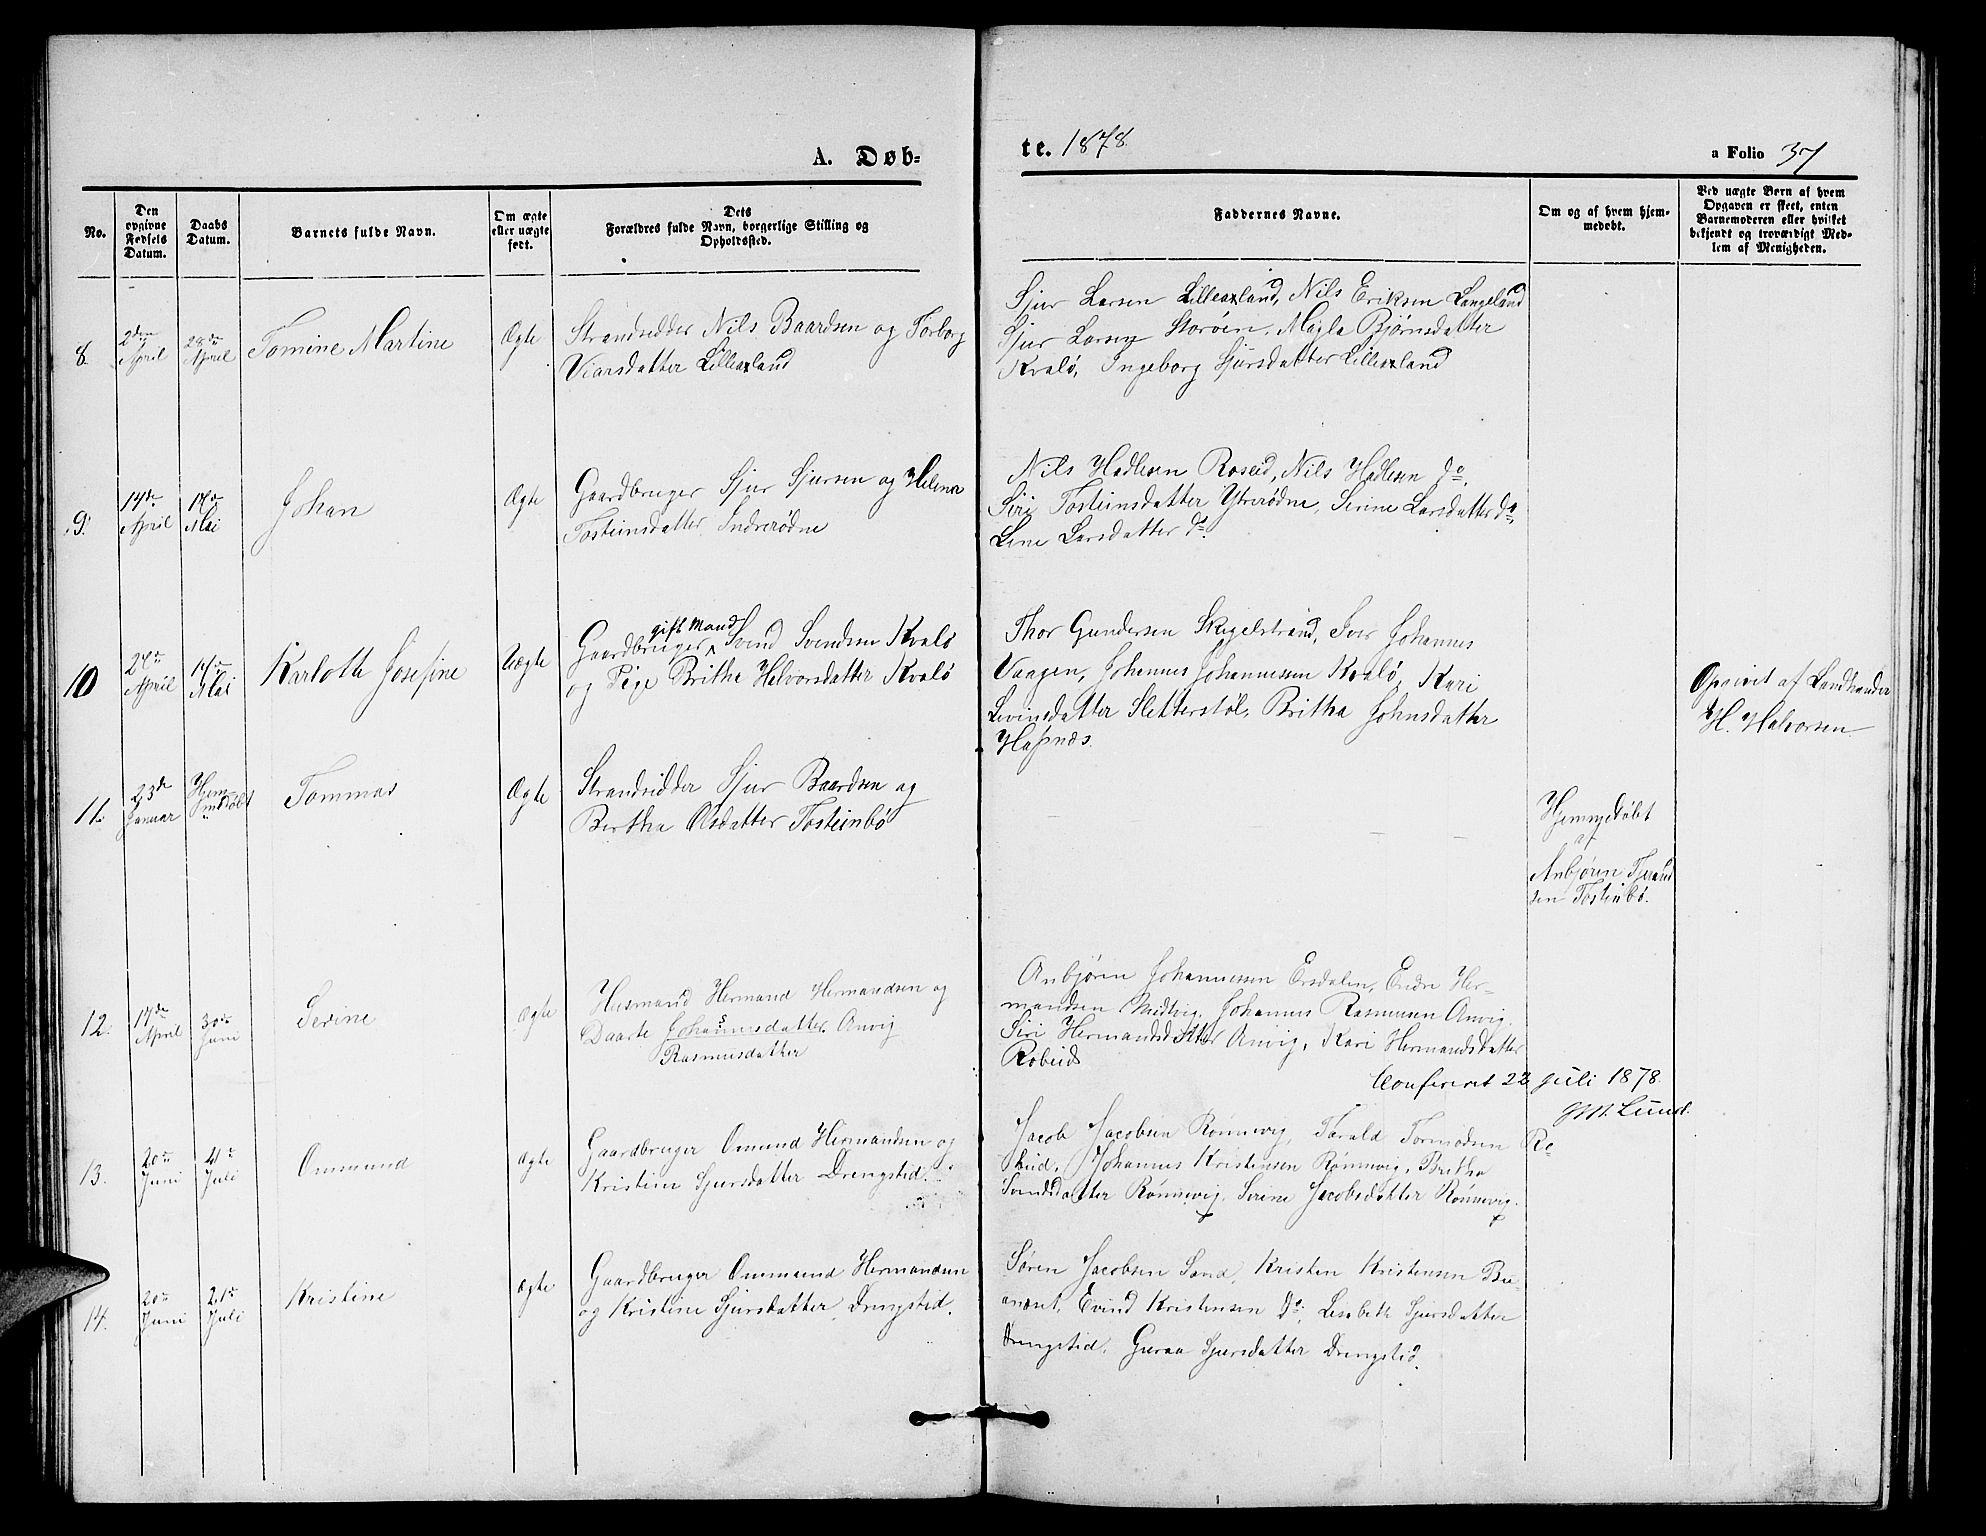 A. Døb=
te. 1878.
a Folio 37
No.
Den opgivne Fødsels Datum.
Daabs Datum.
Barnets fulde Navn.
Om ægte eller uægte født.
Dets Forældres fulde Navn, borgerlige Stilling og Opholdssted.
Faddernes Navne.
Om og af hvem hjem- medøbt.
Ved uægte Børn af hvem Opgaven er skeet, enten Barnemoderen eller hvilket bekjendt og troværdigt Med- lem af Menigheden.
8.
2den April
28de April
Tomine Martine
Ægte
Strandsidder Nils Baardsen og Torborg
Viarsdatter Lilleaxland
Sjur Larsen Lilleaxland, Nils Eriksen Langeland
Sjur Larsen Storøen, Magla Bjørnsdatter
Kvalø, Ingeborg Sjursdatter Lilleaxland
9.
14de April
17de Mai
Johan
Ægte
Gaardbruger Sjur Sjursen og Helena
Tosteinsdatter Indrerødne
Nils Hadlesen Roseid, Nils Hadlesen do,
Siri Tosteinsdatter Ytrerødne, Serine Larsdatter do,
Lene Larsdatter do.
10
24de April
17de Mai
Karlotte Josefine
Uægte
gift Mand
Gaardbruger Svend Svendsen Kvalø
og Pige Britha Helvorsdatter Kvalø
Thor Gundersen Skigelstrand, Iver Johannes
Vaagen, Johannes Johannessen Kvalø, Kari
Levinsdatter Sletterstøl, Britha Johnsdatter
Hapnæs.
Opgivet af Landhandler
H. Halvorsen
11.
23de Januar
Hjemmedøbt
Tommas
Ægte
Strandsidder Sjur Baardsen og
Bertha Olsdatter Tosteinbø
Hjemmedøbt
af
Anbjøren Tjerand
sen Tosteinbø.
12.
17de April
30de Juni
Serine
Ægte
Husmand Hermand Hermandsen og
Daarte Johannesdatter Anvig
Rasmusdatter
Anbjøren Johannessen Ersdalen, Endre Her-
mandsen Midtvig, Johannes Rasmusen Anvig
Siri Hermandsdatter Anvig, Kari Hermandsdatter
Røbeids
Confereret 22 Juli 1878.
G.M. Lund.
13.
20de Juni
21de Juli
Ommund
Ægte
Gaardbruger Omund Hermandsen og
Kristine Sjursdatter Drengstid.
Jacob Jacobsen Rønnevig, Tarald Tormodsen Rø-
beid, Johannes Kristensen Rønnevig, Britha
Svendsdatter Rønnevig, Serine Jacobsdatter Rønnevig.
14.
20de Juni
21de Juli
Kristine
Ægte
Gaardbruger Ommund Hermandsen
og Kristine Sjursdatter Drengstid.
Søren Jacobsen Sand, Kristen Kristensen Bu-
anæset, Evind Kristensen do, Lisabeth Sjursdatter
Drengstid, Guraa Sjursdatter Drengstid.